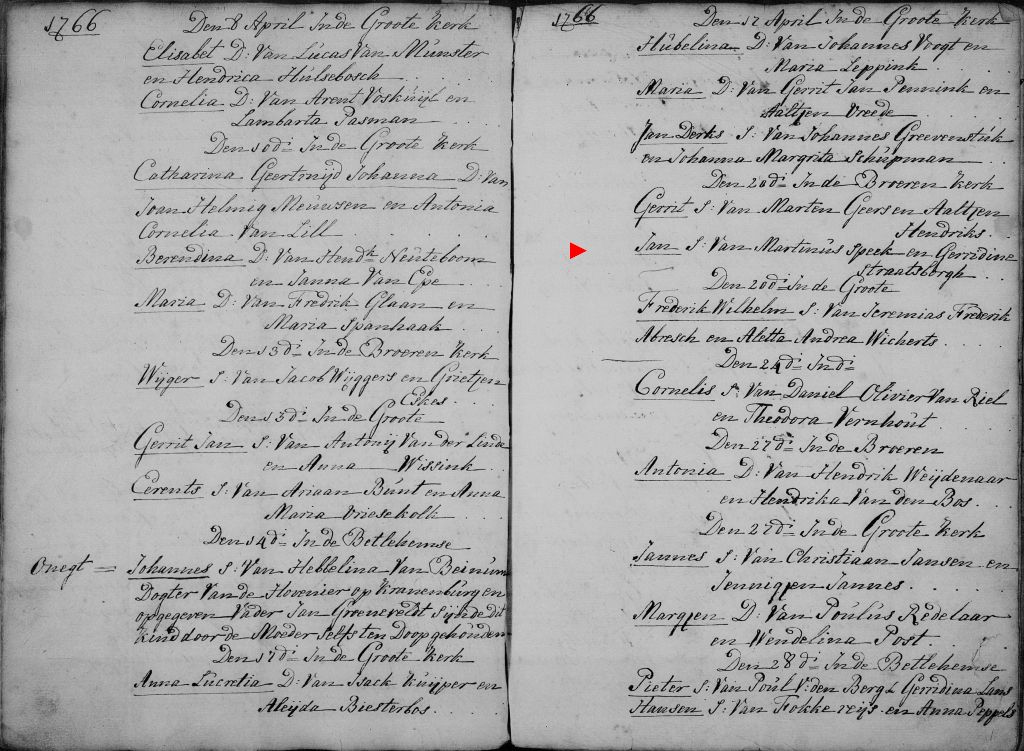 1766
Den 8 April In de Groote Kerk
Elisabet D: Van Lucas Van Munster
en Hendrica Hulsebosch
Cornelia D: Van Arent Voskuijl en
Lambarta Pasman
Den 10di In de Groote Kerk
Catharina Geertruijd Johanna D: Van
Joan Helmig Meuwsen en Antonia
Cornelia Van Lill
Berendina D: Van Hendk Neuteboom
en Janna Van Epe
Maria D: Van Fredrik Glaan en
Maria Spanhaak
Den 13di In de Broeren Kerk
Wijger S: Van Jacob Wijggers en Grietjen
Eskes
Den 13di In de Groote
Gerrit Jan S: Van Antonij Van der Linde
en Anna Wissink
Cerents S: Van Ariaan Bunt en Anna
Maria Vriesekolk
Den 14di In de Betlehemse
Onegt = Johannes S: Van Hebbelina Van Beinum
Dogter Van de Hovenier op Kranenburg en
opgegeven Vader Jan Groeneveldt Sijnde dit
Kind door de Moeder Selfs ten Doop gehouden
Den 17di In de Groote Kerk
Anna Lucretia D: Van Isack Kuijper en
Aleyda Biesterbos
1766
Den 17 April In de Groote Kerk
Hubelina D: Van Johannes Voogt en
Maria Leppink
Maria D: Van Gerrit Jan Pennink en
Aaltjen Vreede
Jan Derks S: Van Johannes Greevenstuk
en Johanna Margrita Schupman
Den 20di In de Broeren Kerk
Gerrit S: Van Marten Geers en Aaltjen
Hendriks
Jan S: Van Martinus Speek en Gerridine
Straatsbergh
Den 20di In de Groote
Frederik Wilhelm S: Van Jeremias Frederik
Abresch en Aletta Andrea Wicherts
Den 24di Indi
Cornelis S: Van Daniel Olivier Van Riel
en Theodora Vernhout
Den 27di In de Broeren
Antonia D: Van Hendrik Weijdenaar
en Hendrika Van den Bos
Den 27di In de Groote Kerk
Jannes S: Van Christiaan Jansen en
Jennigjen Jannes
Margjen D: Van Poulus Redelaar
en Wendelina Post
Den 28di In de Betlehemse
Pieter S: Van Poul V: den Berg & Gerridina Lans
Hansen S: Van Fokke reijs en Anna Peppels